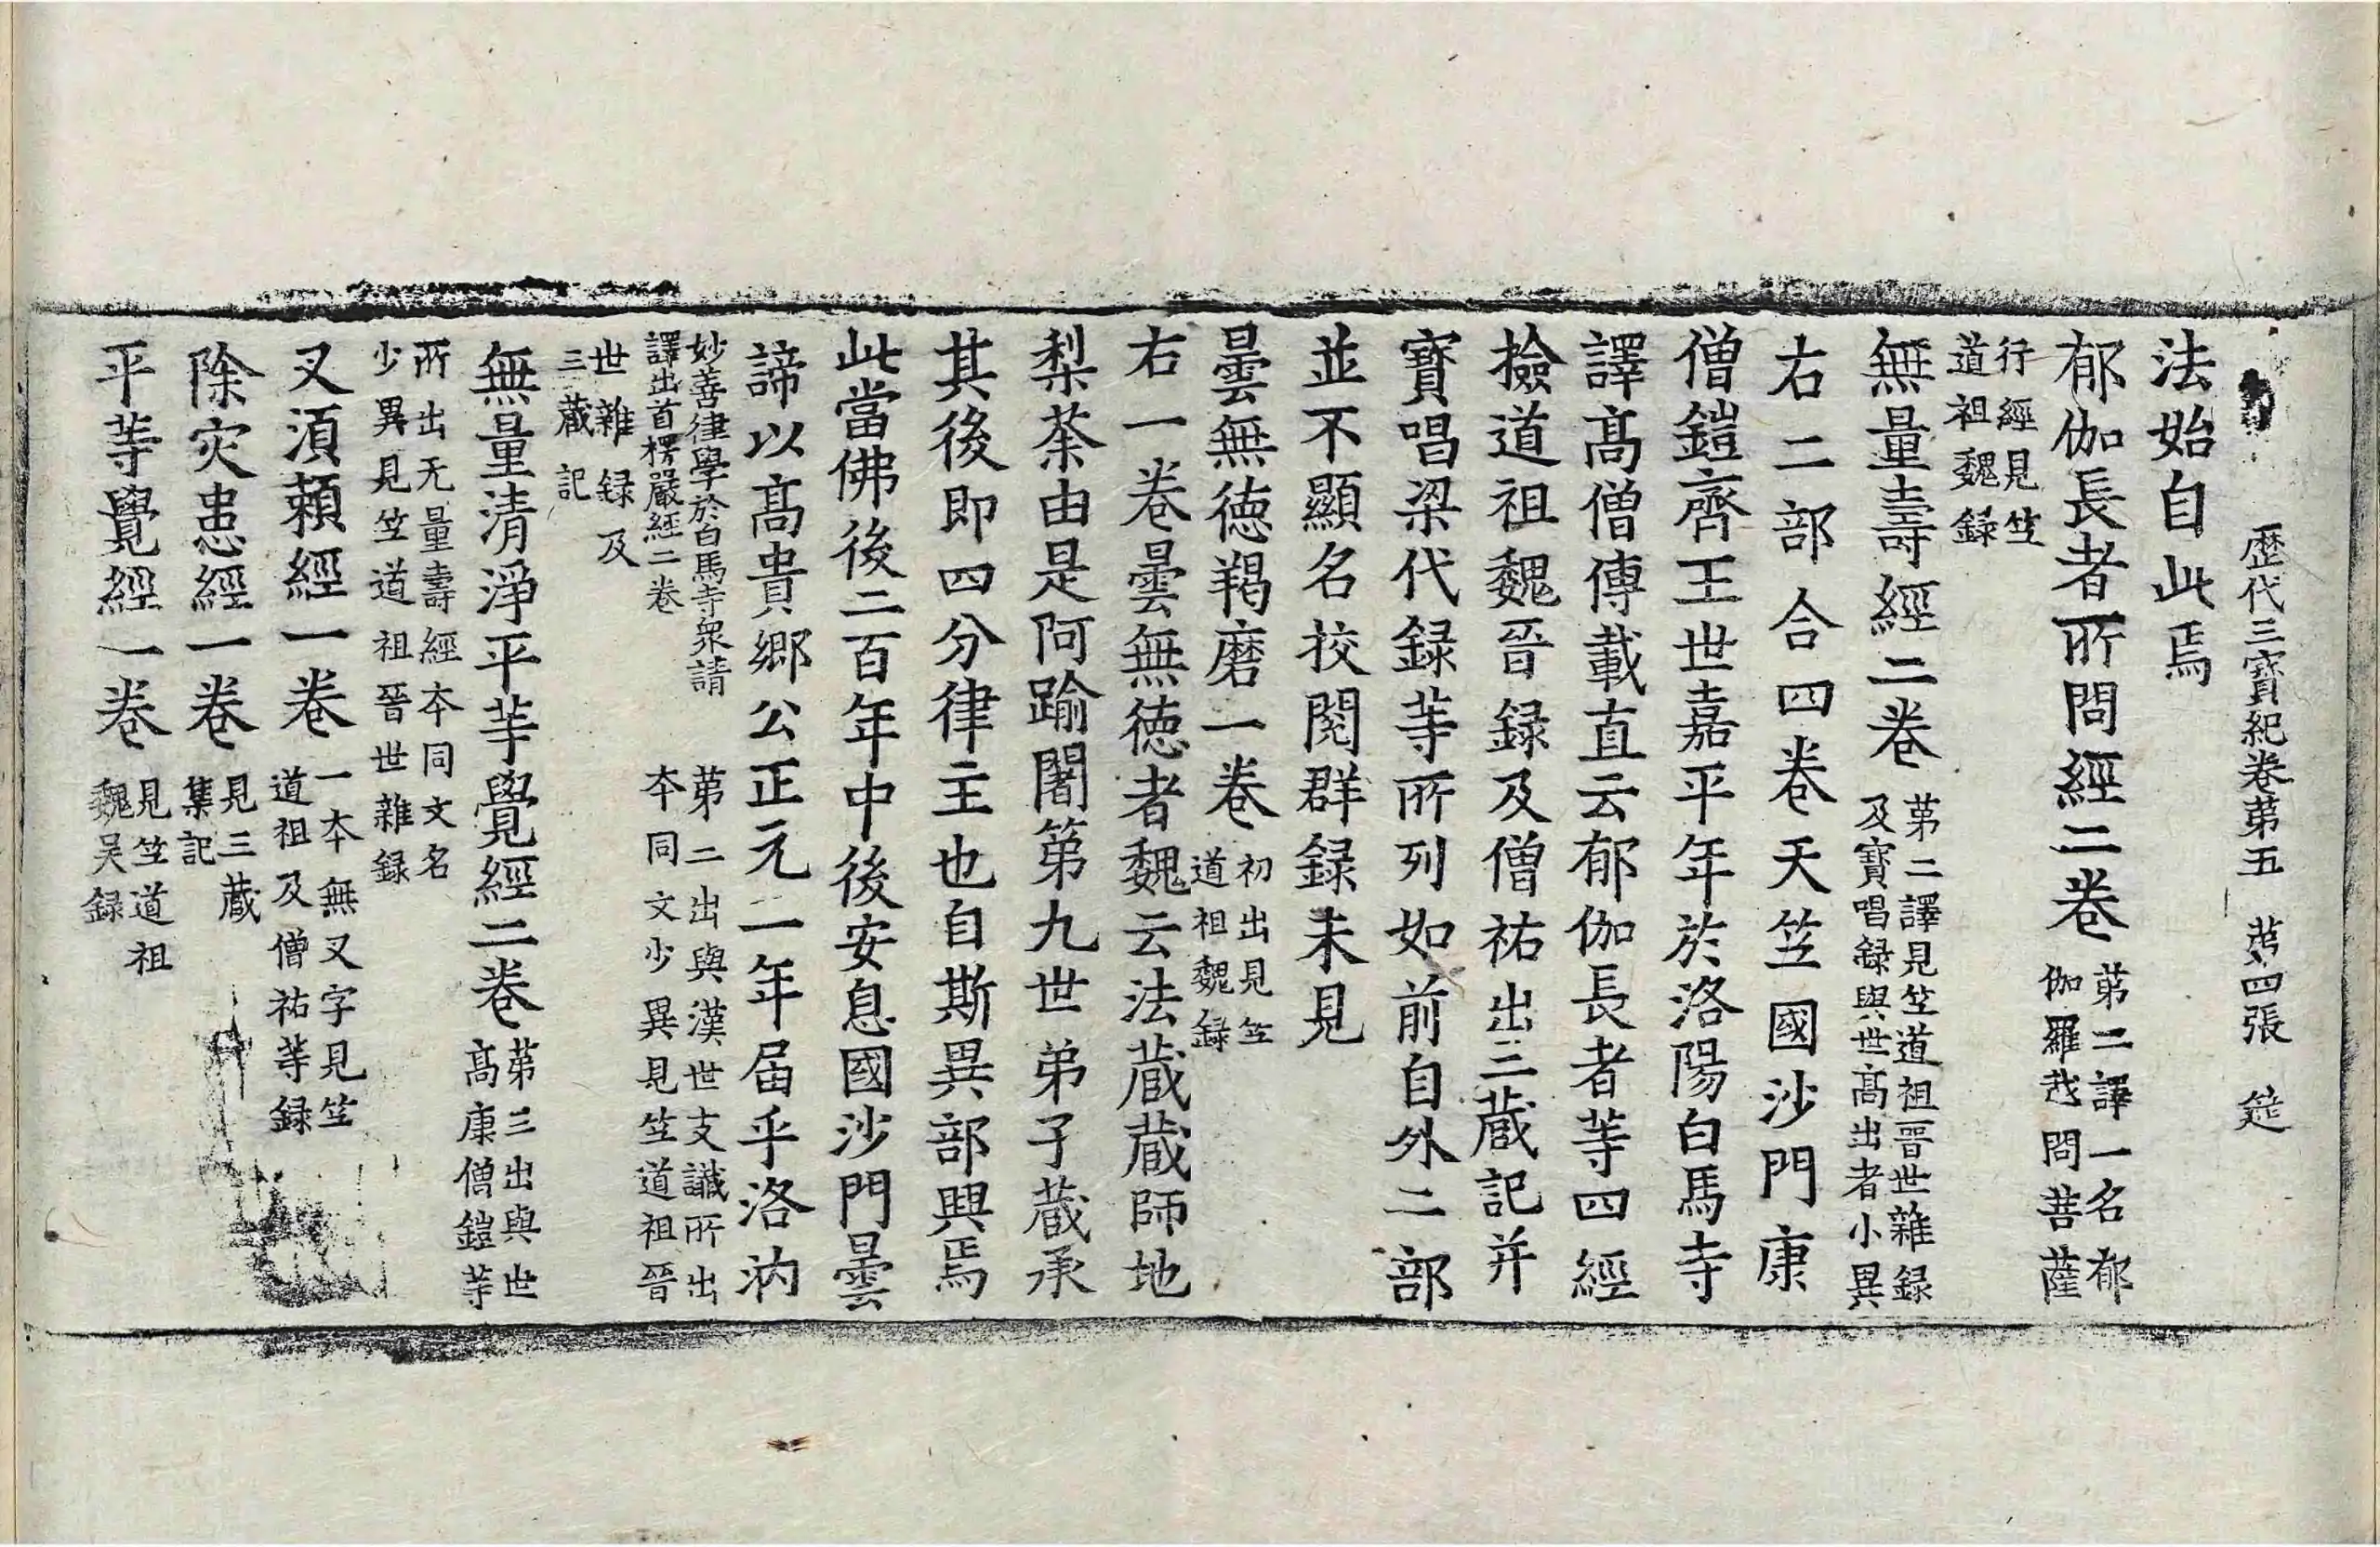 歷代三寳紀卷苐五 苐四張 筵
法始自此焉
郁伽長者所問經二卷 苐二譯一名郁
伽羅越問菩薩
行經見竺
道祖魏録
無量壽經二卷 苐二譯見竺道祖晋世雜録
及寳唱録與世髙出者小異
右二部合四卷天竺國沙門康
僧鎧齊王世嘉平年於洛陽白馬寺
譯髙僧傳載直云郁伽長者等四經
撿道祖魏晉録及僧祐出三藏記并
寳唱梁代録等所列如前自外二部
並不顯名挍閱群録未見
曇無德羯磨一卷 初出見竺
道祖魏録
右一卷曇無德者魏云法藏藏師地
梨荼由是阿踰闍第九世弟子藏承
其後即四分律主也自斯異部興焉
此當佛後二百年中後安息國沙門曇
諦以髙貴郷公正元一年届乎洛汭
妙善律學於白馬寺衆請
譯出首楞嚴經二卷 苐二出與漢世支讖所出
本同文少異見竺道祖晉
世雜録及
三藏記
無量清淨平等覺經二卷 苐三出與世
髙康僧鎧等
所出无量壽經本同文名
少異見竺道祖晉世雜録
叉湏頼經一卷 一本無叉字見竺
道祖及僧祐等録
除灾患經一卷 見三藏
集記
平等覺經一卷 見竺道祖
魏吴録